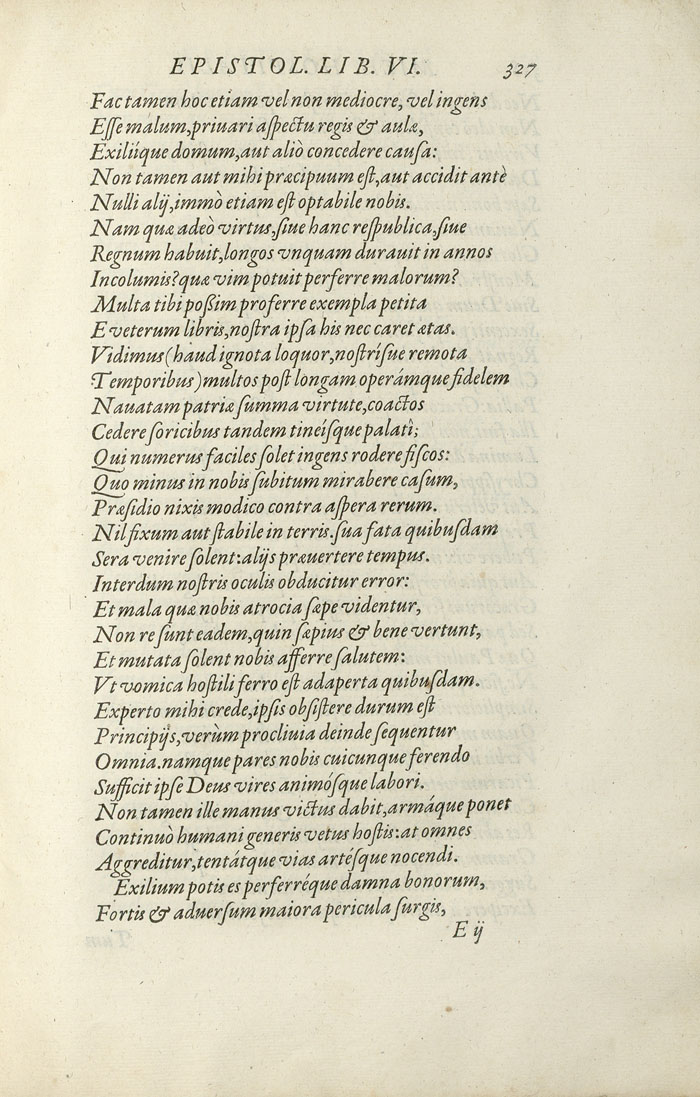 EPISTOL. LIB. VI. 327
Fac tamen hoc etiam vel non mediocre, vel ingens
Eſſe malum, priuari aſpectu regis & aulæ,
Exiliíque domum, aut aliò concedere cauſa:
Non tamen aut mihi præcipuum eſt, aut accidit antè
Nulli alij, immò etiam eſt optabile nobis.
Nam quæ adeò virtus, ſiue hanc reſpublica, ſiue
Regnum habuit, longos vnquam durauit in annos
Incolumis? quæ vim potuit perferre malorum?
Multa tibi poßim proferre exempla petita
E veterum libris, noſtra ipſa his nec caret ætas.
Vidimus (haud ignota loquor, noſtríſue remota
Temporibus) multos poſt longam operámque fidelem
Nauatam patriæ ſumma virtute, coactos
Cedere ſoricibus tandem tineíſque palatî;
Qui numerus faciles ſolet ingens rodere fiſcos:
Quo minus in nobis ſubitum mirabere caſum,
Præſidio nixis modico contra aſpera rerum.
Nil fixum aut ſtabile in terris. ſua fata quibuſdam
Sera venire ſolent: alijs præuertere tempus.
Interdum noſtris oculis obducitur error:
Et mala quæ nobis atrocia ſæpe videntur,
Non re ſunt eadem, quin ſæpius & bene vertunt,
Et mutata ſolent nobis afferre ſalutem:
Vt vomica hoſtili ferro eſt adaperta quibuſdam.
Experto mihi crede, ipſis obſiſtere durum eſt
Principijs, verùm procliuia deinde ſequentur
Omnia. namque pares nobis cuicunque ferendo
Sufficit ipſe Deus vires animóſque labori.
Non tamen ille manus victus dabit, armáque ponet
Continuò humani generis vetus hoſtis: at omnes
Aggreditur, tentátque vias artéſque nocendi.
Exilium potis es perferréque damna bonorum,
Fortis & aduerſum maiora pericula ſurgis,
E ij